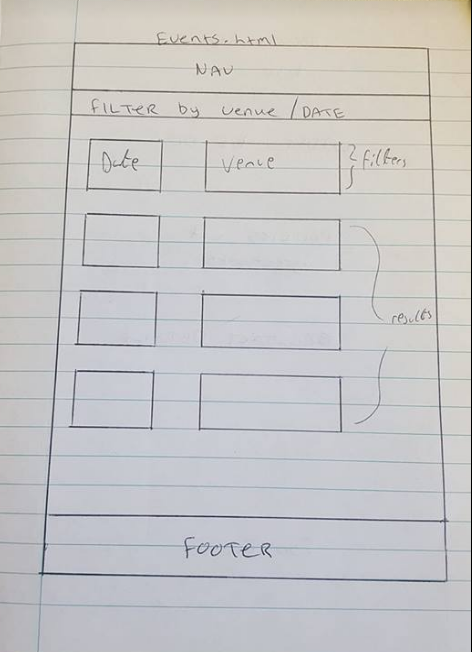 Events.html
NAV
FILTER by venue / DATE
Date Venue filters
results
FOOTER